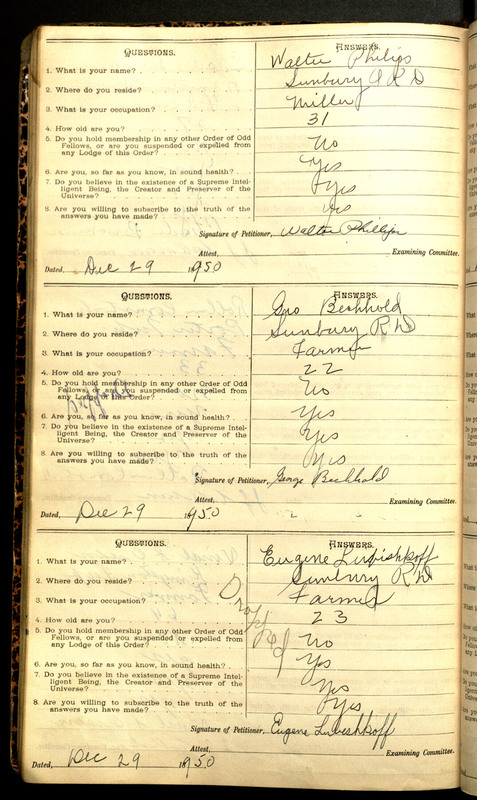 QUESTIONS. ANSWERS.
1. What is your name? Walter Philips
2. Where do you reside? Sunbury R D
3. What is your occupation? Miller
4. How old are you? 31
5. Do you hold membership in any other Order of Odd
Fellows, or are you suspended or expelled from
any Lodge of this Order? No
6. Are you, so far as you know, in sound health? Yes
7. Do you believe in the existence of a Supreme Intel-
ligent Being, the Creator and Preserver of the
Universe? Yes
8. Are you willing to subscribe to the truth of the
answers you have made? Yes
Signature of Petitioner, Walter Phillips
Attest,
Examining Committee.
Dated, Dec 29 1950
QUESTIONS. ANSWERS.
1. What is your name? Geo Bechhold
2. Where do you reside? Sunbury R D
3. What is your occupation? Farmer
4. How old are you? 22
5. Do you hold membership in any other Order of Odd
Fellows, or are you suspended or expelled from
any Lodge of this Order? No
Dropped
6. Are you, so far as you know, in sound health? Yes
7. Do you believe in the existence of a Supreme Intel-
ligent Being, the Creator and Preserver of the
Universe? Yes
8. Are you willing to subscribe to the truth of the
answers you have made? Yes
Signature of Petitioner, George Bechhold
Attest,
Examining Committee.
Dated, Dec 29 1950
QUESTIONS. ANSWERS.
1. What is your name? Eugene Lubishkoff
2. Where do you reside? Sunbury R D
3. What is your occupation? Farmer
4. How old are you? 23
Dropped
5. Do you hold membership in any other Order of Odd
Fellows, or are you suspended or expelled from
any Lodge of this Order? No
6. Are you, so far as you know, in sound health? Yes
7. Do you believe in the existence of a Supreme Intel-
ligent Being, the Creator and Preserver of the
Universe? Yes
8. Are you willing to subscribe to the truth of the
answers you have made? Yes
Signature of Petitioner, Eugene Lubishkoff
Attest,
Examining Committee.
Dated, Dec 29 1950